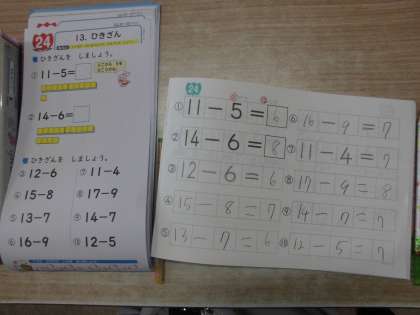 24
13. ひきざん
ひきざんを しましょう。
① 11-5=
② 14-6=
ひきざんを しましょう。
③ 12-6 ⑦ 11-4
④ 15-8 ⑧ 17-9
⑤ 13-7 ⑨ 14-7
⑥ 16-9 ⑩ 12-5
24
① 11-5=6
⑥ 16-9=7
② 14-6=8
⑦ 11-4=7
③ 12-6=6
⑧ 17-9=8
④ 15-8=7
⑨ 14-7=7
⑤ 13-7=6
⑩ 12-5=7